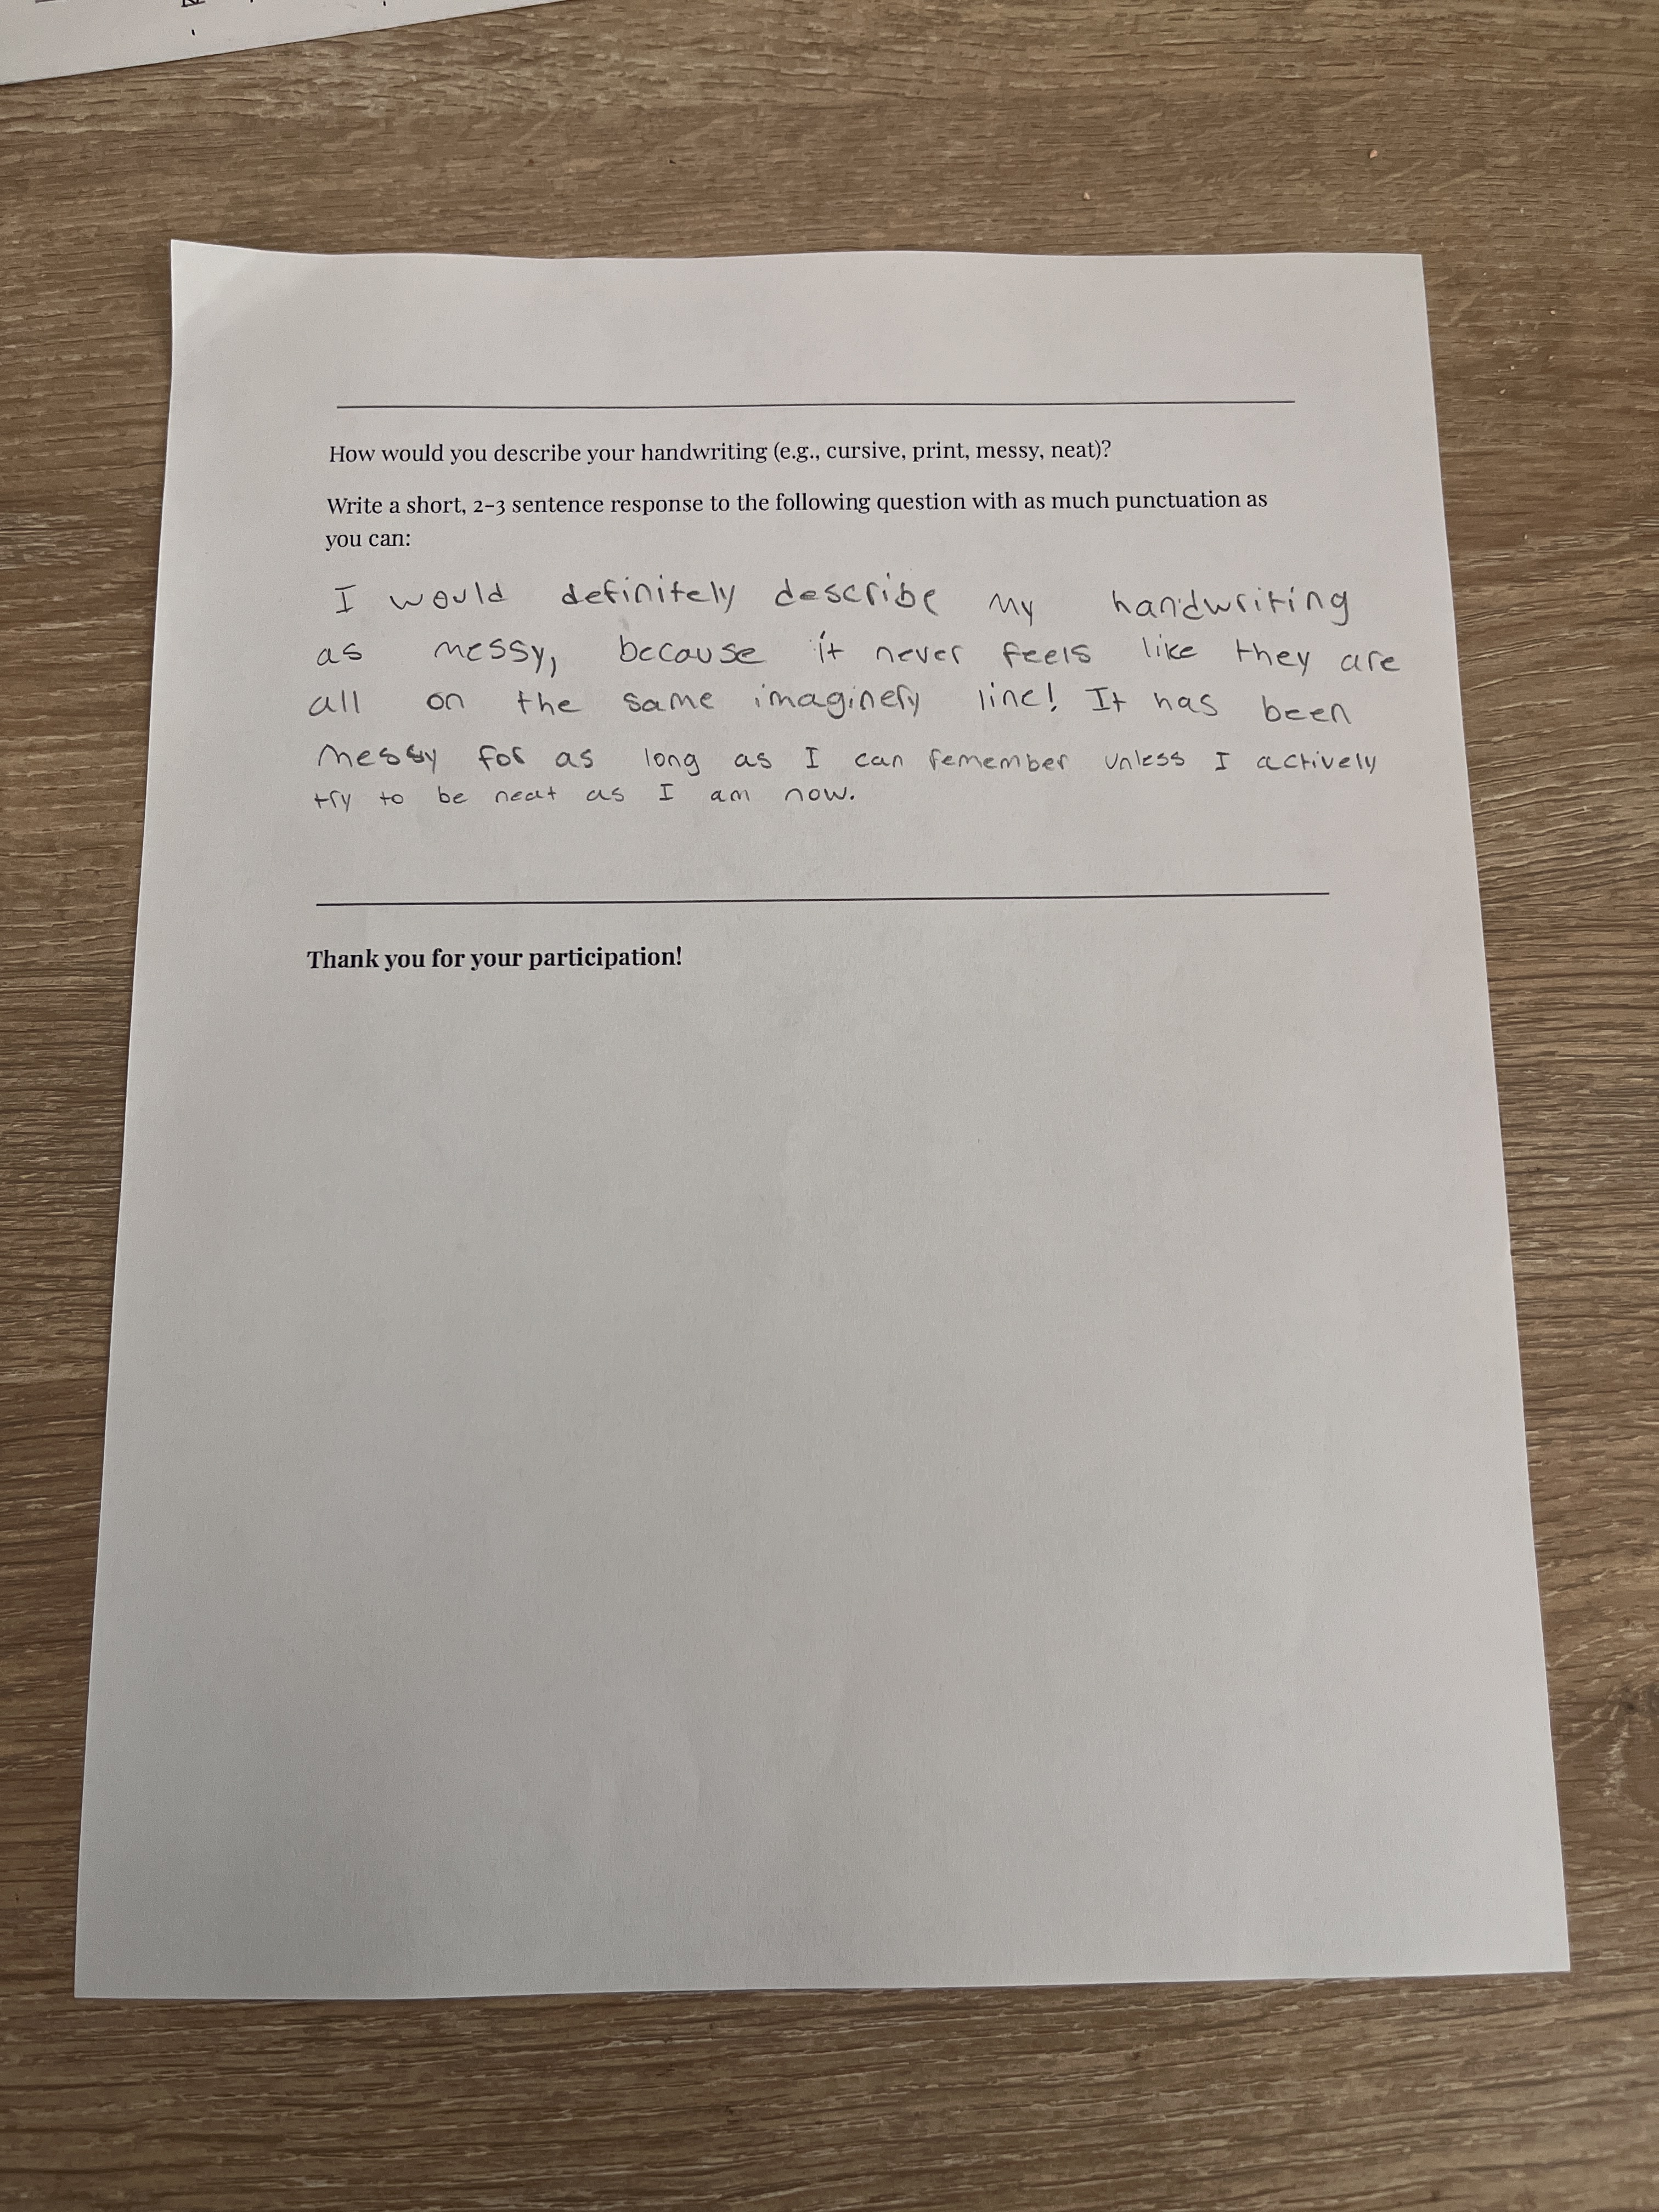 How would you describe your handwriting (e.g., cursive, print, messy, neat)?
Write a short, 2-3 sentence response to the following question with as much punctuation as
you can:
I would definitely describe my handwriting
as messy, because it never feels like they are
all on the same imaginery line! It has been
messy for as long as I can remember unless I actively
try to be neat as I am now.
Thank you for your participation!